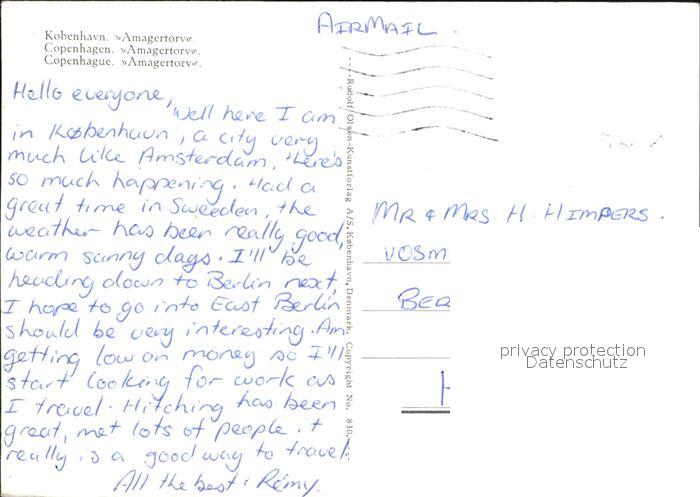 København. »Amagertorv«.
Copenhagen. »Amagertorv«.
Copenhague. »Amagertorv«.
AIRMAIL.
Hello everyone,
Well here I am
in København, a city very
much like Amsterdam, there's
so much happening. Had a
great time in Sweeden, the
weather has been really good,
warm sunny days. I'll be
heading down to Berlin next,
I hope to go into East Berlin
should be very interesting. Am
getting low on money so I'll
start looking for work as
I travel. Hitching has been
great, met lots of people it
really is a good way to travel
All the best: Rémy.
Rudolf Olsen-Kunstforlag A/S. København, Denmark. Copyright No. 830.
MR & MRS H. HIMPERS.
VOSM
BER
H
privacy protection
Datenschutz